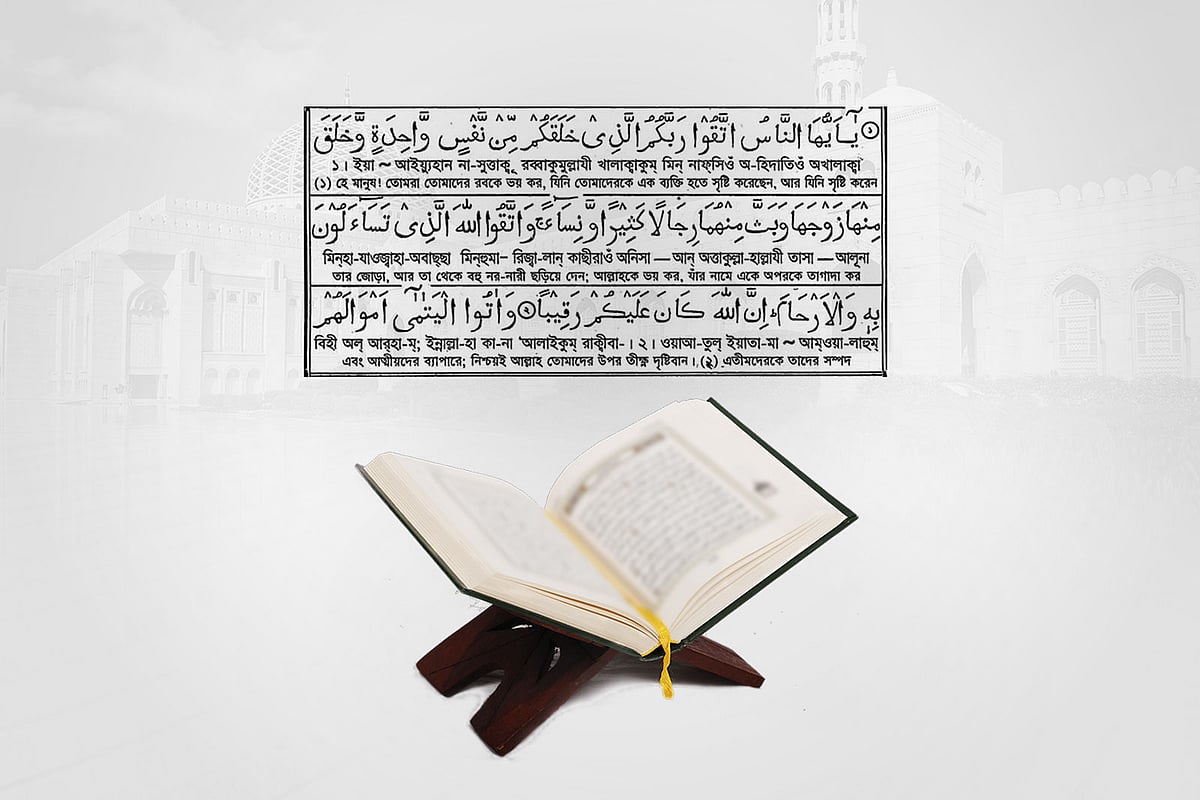 ① يٰٓاَيُّهَا النَّاسُ اتَّقُوْا رَبَّكُمُ الَّذِىْ خَلَقَكُمْ مِّنْ نَّفْسٍ وَّاحِدَةٍ وَّخَلَقَ
১। ইয়া ~ আইয়্যুহান না-সুত্তাক্বূ রব্বাকুমুল্লাযী খালাক্বাকুম্ মিন্ নাফ্সিওঁ অ-হিদাতিওঁ অখালাক্বা
(১) হে মানুষ! তোমরা তোমাদের রবকে ভয় কর, যিনি তোমাদেরকে এক ব্যক্তি হতে সৃষ্টি করেছেন, আর যিনি সৃষ্টি করেন
مِنْهَا زَوْجَهَا وَبَثَّ مِنْهُمَا رِجَالًا كَثِيْرًا وَّنِسَآءً ۚ وَاتَّقُوا اللّٰهَ الَّذِىْ تَسَآءَلُوْنَ
মিন্হা-যাওজ্বাহা-অবাছ্ছা মিন্হুমা- রিজ্বা-লান্ কাছীরাওঁ অনিসা — আন্ অত্তাকুল্লা-হাল্লাযী তাসা — আলূনা
তার জোড়া, আর তা থেকে বহু নর-নারী ছড়িয়ে দেন; আল্লাহকে ভয় কর, যাঁর নামে একে অপরকে তাগাদা কর
بِهٖ وَالْاَرْحَامَ ؕ اِنَّ اللّٰهَ كَانَ عَلَيْكُمْ رَقِيْبًا ② وَاٰتُوا الْيَتٰمٰٓى اَمْوَالَهُمْ
বিহী অল্ আর্‌হা-ম্; ইন্নাল্লা-হা কা-না 'আলাইকুম্ রাক্বীবা-। ২। ওয়াআ-তুল্ ইয়াতা-মা ~ আম্ওয়া-লাহুম্
এবং আত্মীয়দের ব্যাপারে; নিশ্চয়ই আল্লাহ তোমাদের উপর তীক্ষ্ণ দৃষ্টিবান। (২) এতীমদেরকে তাদের সম্পদ